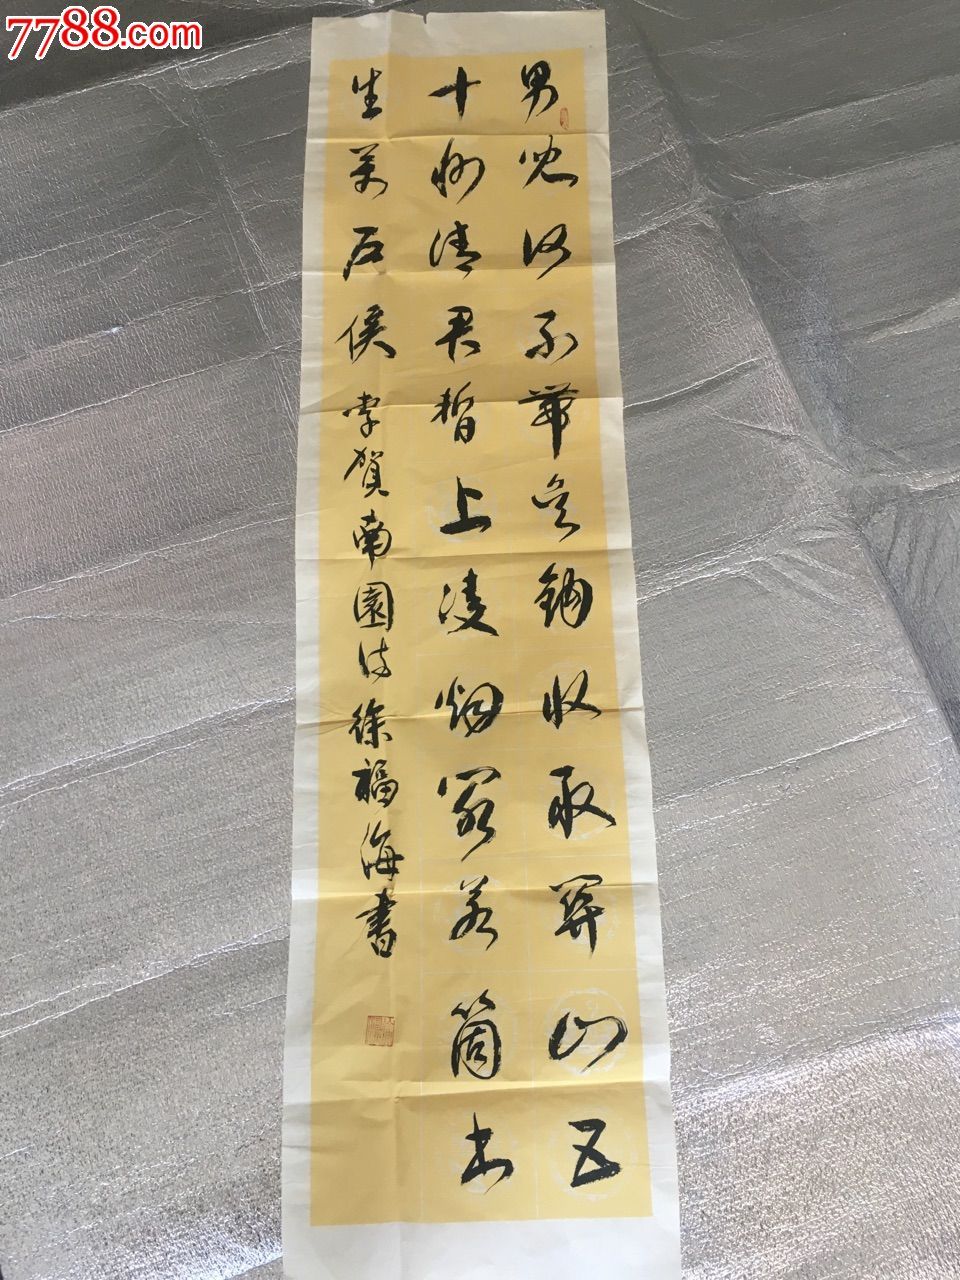 7788.com
男兒何不帶吴鉤收取關山五
十州请君暫上凌烟閣若箇书
生萬户侯 李賀南園诗徐福海書